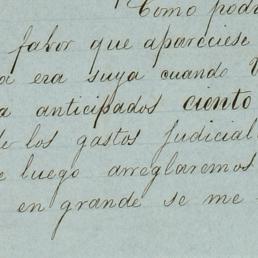 Como podr
favor que apareciese
a era suya cuando V
a anticipados ciento
de los gastos judicial
e luego arreglaremos
en grande se me